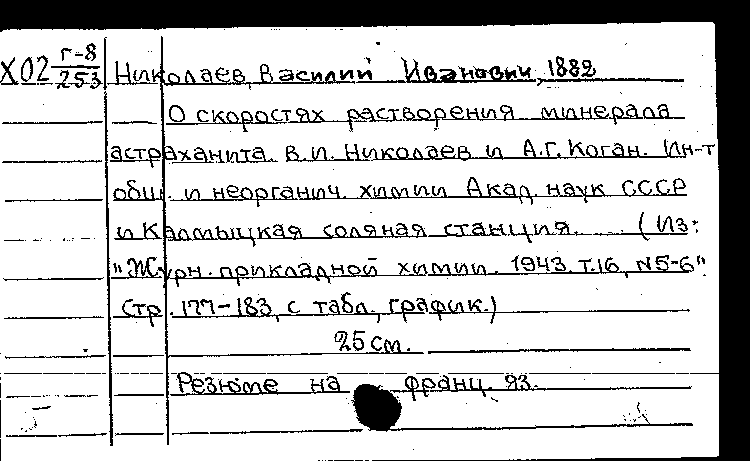 Х02 г-8/253 Николаев, Василий Иванович, 1882
О скоростях растворения минерала
астраханита. В.И. Николаев и А.Г. Коган. Ин-т
общ. и неорганич. химии Акад. наук СССР
и Калмыцкая соляная станция. (Из:
"Журн. прикладной химии. 1943. Т.16, N5-6"
стр. 177-183, с табл., график.)
25 см.
Резюме на франц. яз.
5